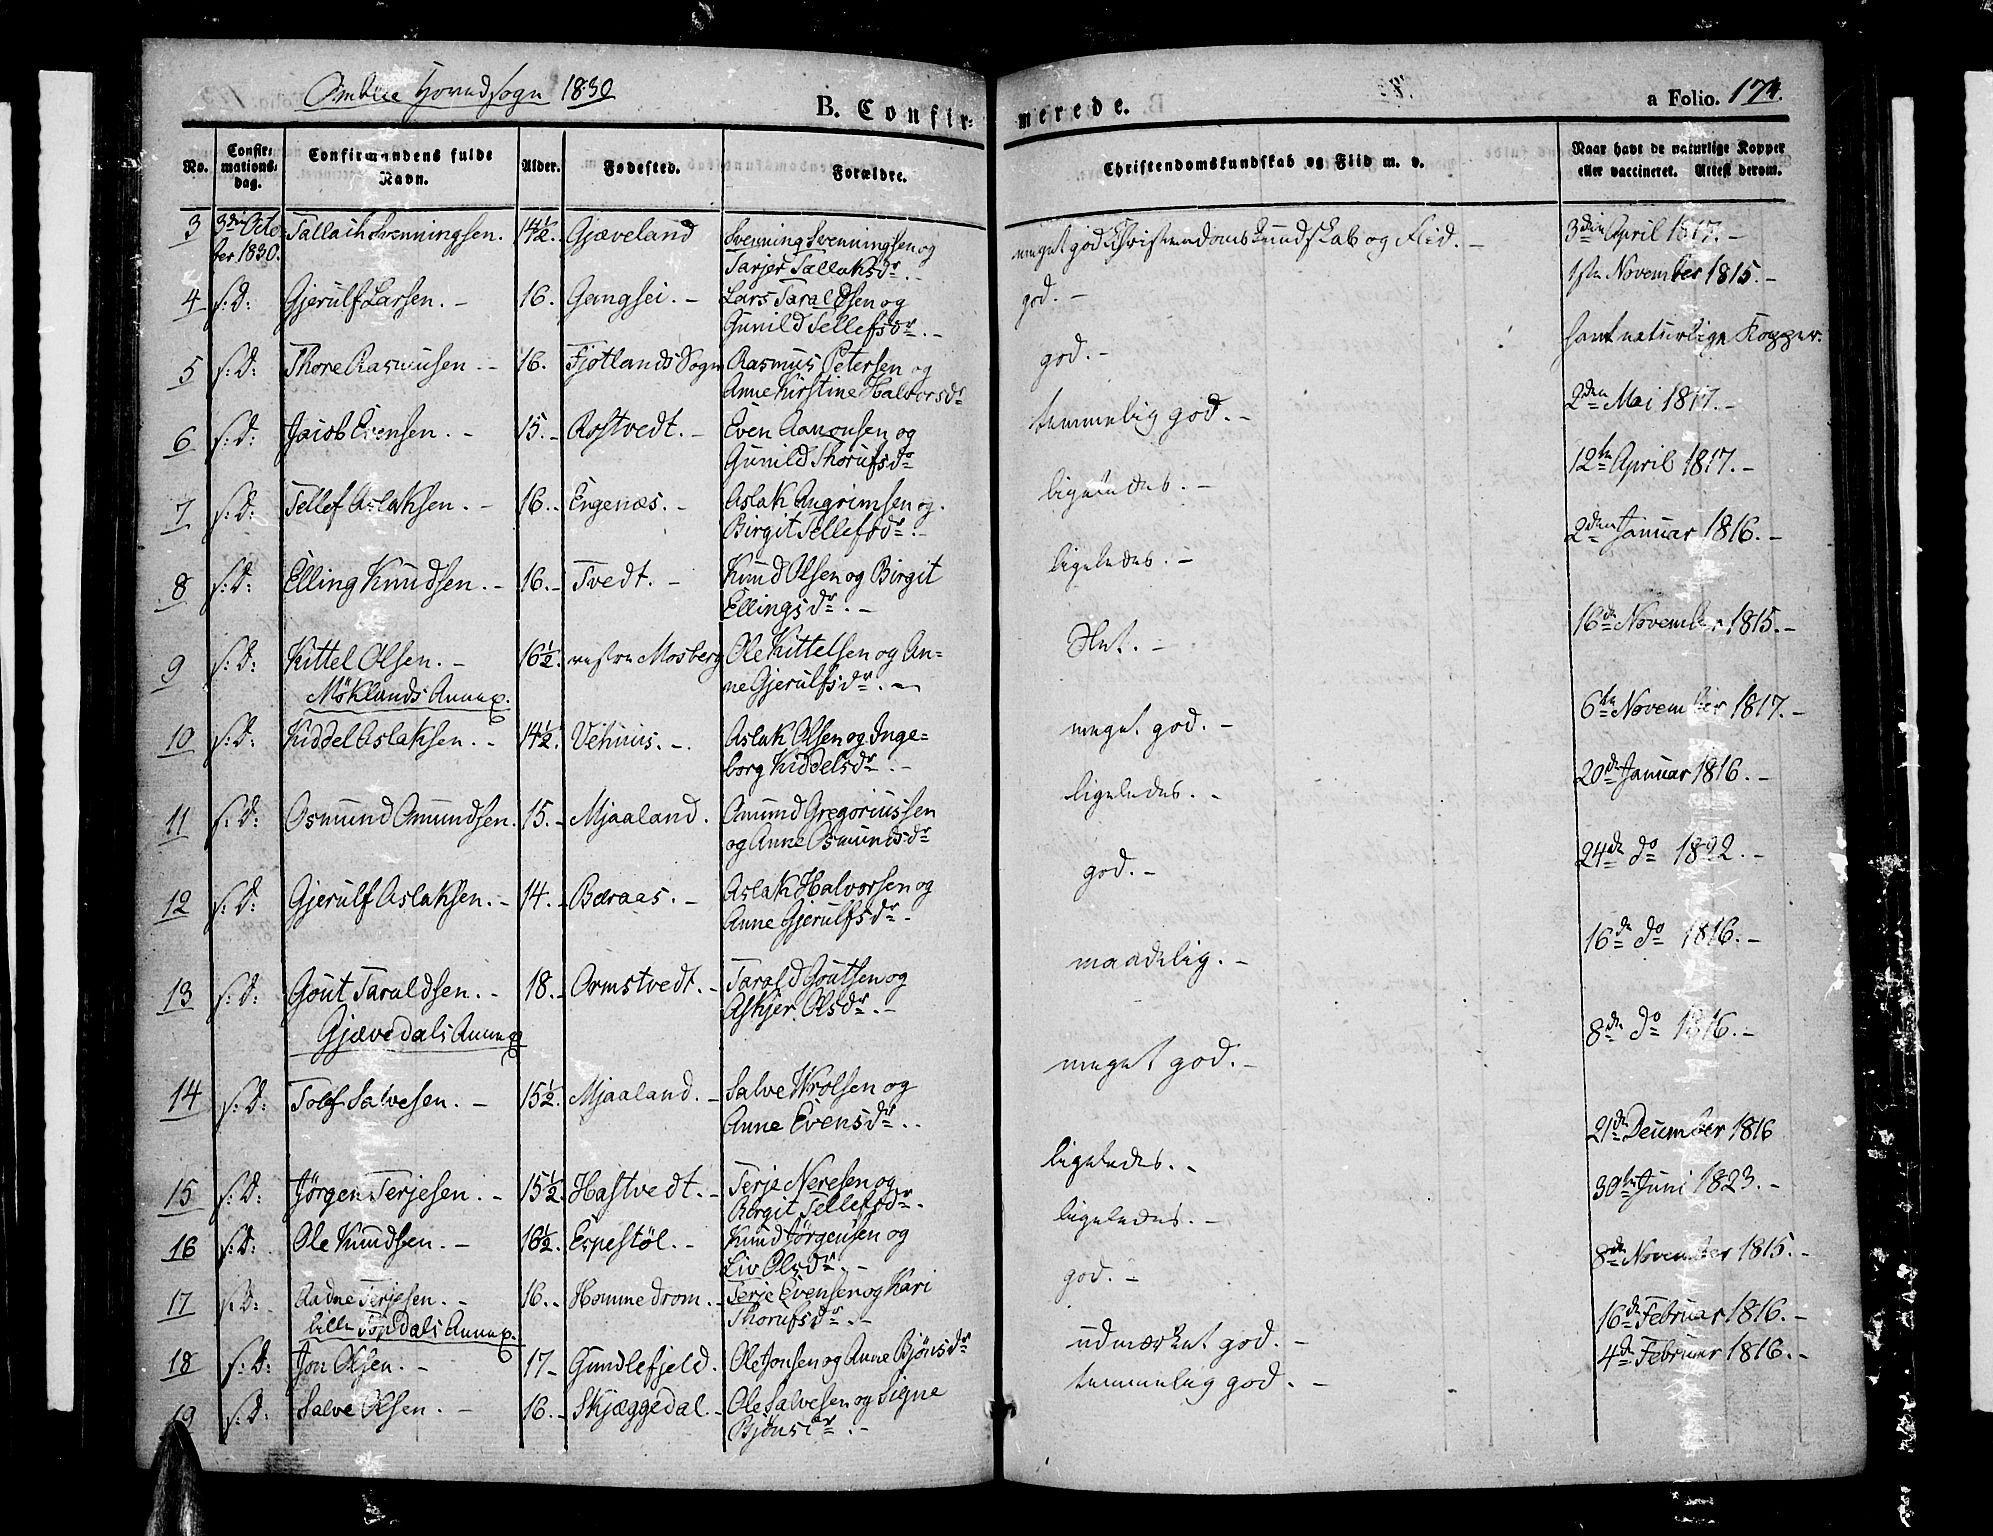 Omblie Hovedsogn 1830
B. Confir-
merede.
a Folio. 174.
No. Confirmations-dag. Confirmandens fulde Navn. Alder. Fødested. Forældre. Christendomskundskab og Flid m. v. Naar havt de naturlige Kopper eller vaccineret. Attest derom.
3 3die Octo- Tallach Svenningsen. 14½. Gjæveland Svenning Svenningsen og meget god Christendomskundskab og Flid. - 3die April 1817. -
ber 1830. Tarjer Tallaksdr. -
4 s: D: Gjerulf Larsen. - 16. Gangsei. - Lars Taraldsen og god. - 1ste November 1815. -
Gunild Tellefsdr. -
5 s: D: Thore Rasmusen. - 16. Fjotlands Sogn Rasmus Petersen og god. - havt naturlige Kopper.
Anne Kirstine Halvorsdr
6 s: D: Jacob Evensen. - 15. - Rostvedt. - Even Aanonsen og temmelig god. - 2den Mai 1817. -
Gunild Thorufsdr
7 s: D: Tellef Aslaksen. - 16. - Engenæs. - Aslak Angrimsen og. ligeledes. - 12te April 1817. -
Birgit Tellefsdr. -
8 s: D: Elling Knudsen. - 16. - Tvedt. - Knud Olsen og Birgit ligeledes. - 2den Januar 1816. -
Ellingsdr. -
9 s: D: Kittel Olsen. - 16½. vestre Mosberg Ole Kittelsen og An- Slet. - 16de November 1815. -
ne Gjerulfsdr. -
Møklands Annex.
10 s: D: Kiddel Aslaksen. - 14½. Vehuus. -. Aslak Olsen og Inge- meget god. - 6te November 1817. -
borg Kiddelsdr. -
11 s: D: Osmund Omundsen. 15. - Mjaaland. Omund Gregoriussen ligeledes. - 20de Januar 1816. -
og Anne Osmundsdr
12 s: D: Gjerulf Aslaksen. - 14. - Baraas. - Aslak Halvorsen og god. - 24de do 1822. -
Anne Gjerulfsdr. -
13 s: D: Gout Taraldsen. - 18. - Ormstvedt. - Tarald Goutsen og maadelig. - 16de do 1816. -
Askjer Olsdr. -
Gjævedals Annex
14 s: D: Tolef Salvesen. - 15½. Mjaaland. - Salve Wrolsen og meget god. - 8de do 1816. -
Anne Evensdr. .
15 s: D: Jörgen Terjesen. - 15½. Hastvedt. - Terje Neresen og ligeledes. - 21de December 1816
Birgit Tellefsdr. -
16 s: D: Ole Knudsen. - 16½. Espestöl. - Knud Jörgensen og ligeledes. - 30te Juni 1823. -
Liv Olsdr. -
17 s: D: Aadne Terjesen. - 16. - Hommedrom. - Terje Evensen og Kari god. - 8de November 1815. -
Thorufsdr. -
lille Topdals Annex.
18 s: D: Jon Olsen. - 17 - Gundlefjeld. Ole Jonsen og Anne Bjönsdr udmærket god. - 16de Februar 1816. -
19 s: D: Salve Olsen. - 16. - Skjæggedal. - Ole Salvesen og Signe temmelig god. - 4de Februar 1816. -
Bjönsdr. -